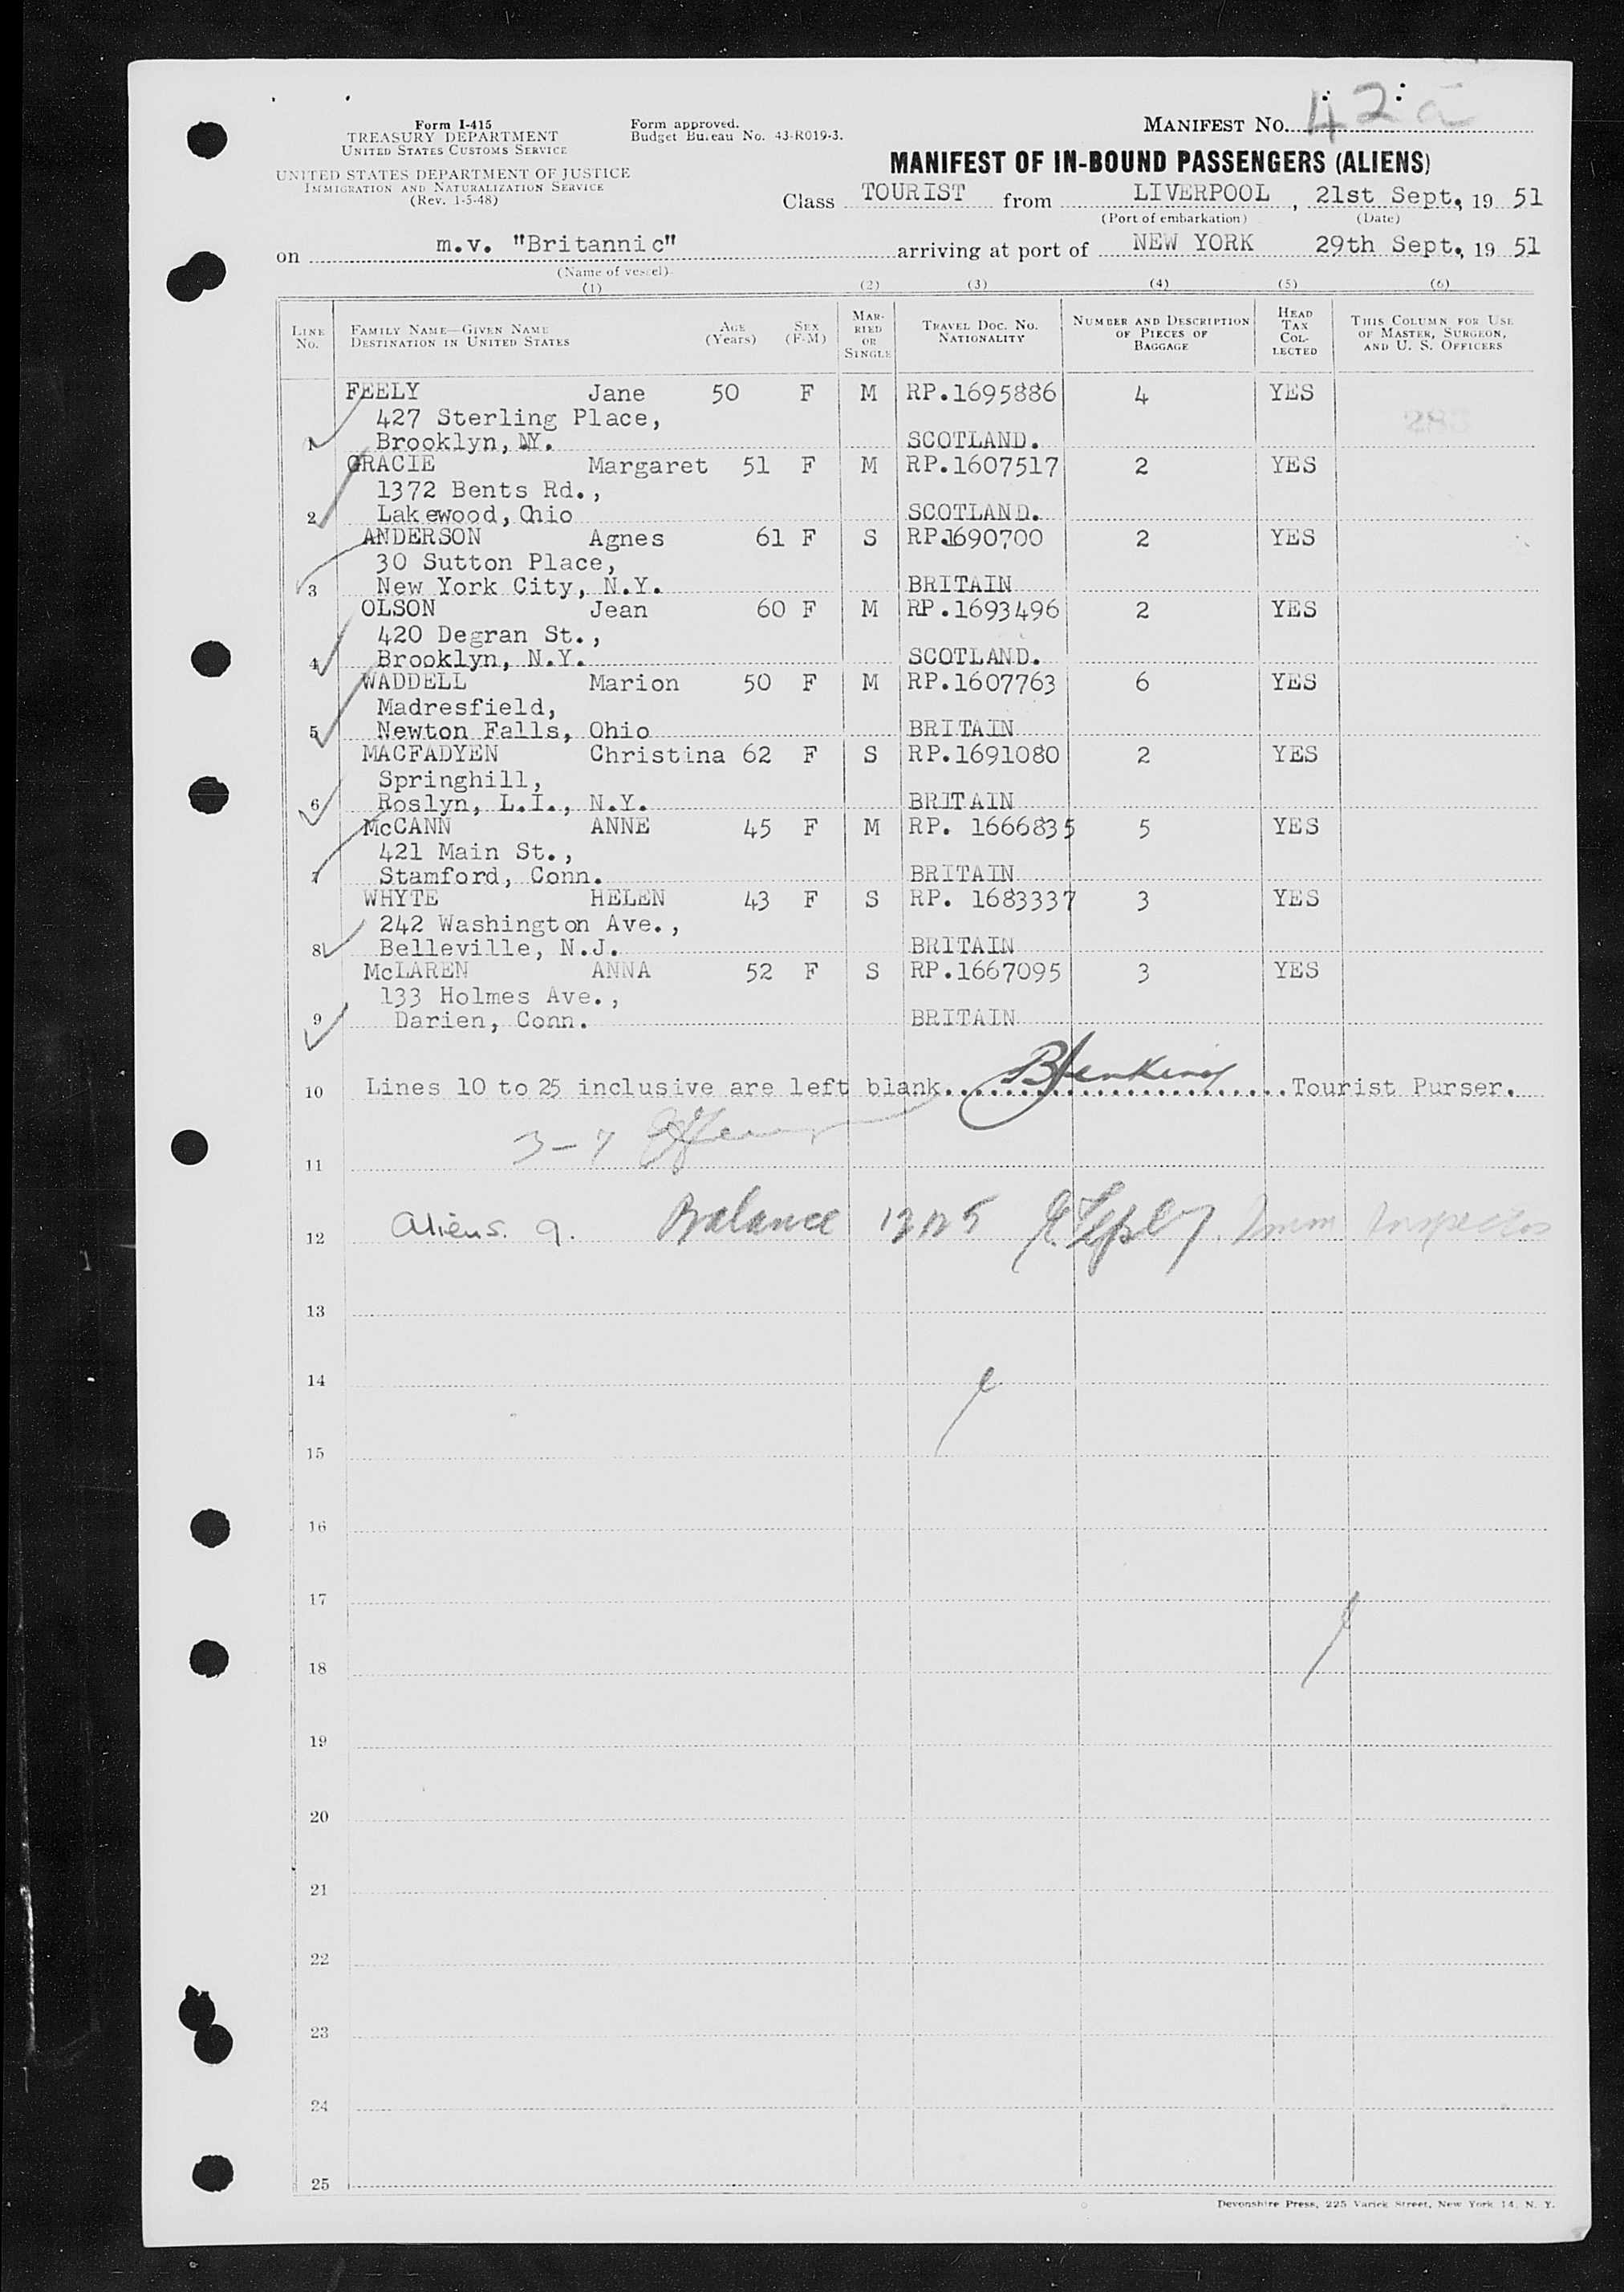 MANIFEST NO. 42a
Form I-415
TREASURY DEPARTMENT
UNITED STATES CUSTOMS SERVICE
Form approved.
Budget Bureau No. 43-R019-3.
UNITED STATES DEPARTMENT OF JUSTICE
IMMIGRATION AND NATURALIZATION SERVICE
(Rev. 1-5-48)
MANIFEST OF IN-BOUND PASSENGERS (ALIENS)
Class TOURIST from LIVERPOOL, 21st Sept., 19 51
(Port of embarkation) (Date)
on m.v. "Britannic" arriving at port of NEW YORK 29th Sept., 19 51
(Name of vessel)
(1) (2) (3) (4) (5) (6)
LINE No. FAMILY NAME—GIVEN NAME DESTINATION IN UNITED STATES AGE (Years) SEX (F-M) MARRIED OR SINGLE TRAVEL DOC. NO. NATIONALITY NUMBER AND DESCRIPTION OF PIECES OF BAGGAGE HEAD TAX COLLECTED THIS COLUMN FOR USE OF MASTER, SURGEON, AND U. S. OFFICERS
FEELY Jane 50 F M RP.1695886 4 YES
427 Sterling Place,
1 Brooklyn, NY. SCOTLAND.
GRACIE Margaret 51 F M RP.1607517 2 YES
1372 Bents Rd.,
2 Lakewood, Ohio SCOTLAND.
ANDERSON Agnes 61 F S RP.1690700 2 YES
30 Sutton Place,
3 New York City, N.Y. BRITAIN
OLSON Jean 60 F M RP.1693496 2 YES
420 Degran St.,
4 Brooklyn, N.Y. SCOTLAND.
WADDELL Marion 50 F M RP.1607763 6 YES
Madresfield,
5 Newton Falls, Ohio BRITAIN
MACFADYEN Christina 62 F S RP.1691080 2 YES
Springhill,
6 Roslyn, L.I., N.Y. BRITAIN
McCANN ANNE 45 F M RP. 1666835 5 YES
421 Main St.,
7 Stamford, Conn. BRITAIN
WHYTE HELEN 43 F S RP. 1683337 3 YES
242 Washington Ave.,
8 Belleville, N.J. BRITAIN
McLAREN ANNA 52 F S RP.1667095 3 YES
133 Holmes Ave.,
9 Darien, Conn. BRITAIN
10 Lines 10 to 25 inclusive are left blank. BJenkins Tourist Purser.
3-7
11
12 Aliens. 9. Balance Imm Inspector
13
14
15
16
17
18
19
20
21
22
23
24
25
Devonshire Press, 225 Varick Street, New York 14, N. Y.